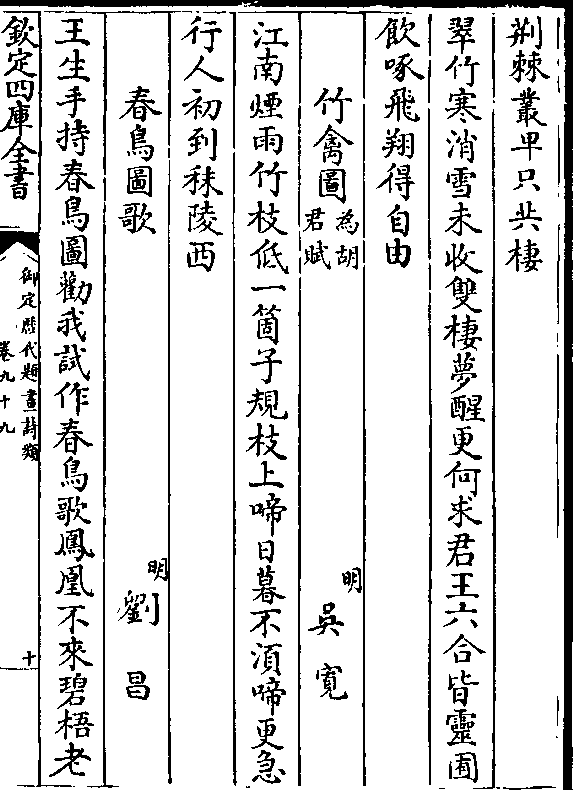 荆棘叢卑只共棲
翠竹寒消雪未收雙棲夢醒更何求君王六合皆靈囿
飲啄飛翔得自由
竹禽圖 為胡君賦 明 吳寛
江南煙雨竹枝低一箇子規枝上啼日暮不須啼更急
行人初到秣陵西
春鳥圖歌 明 劉昌
王生手持春鳥圖勸我試作春鳥歌鳳凰不來碧梧老
欽定四庫全書
御定歷代題畫詩類
卷九十九
十